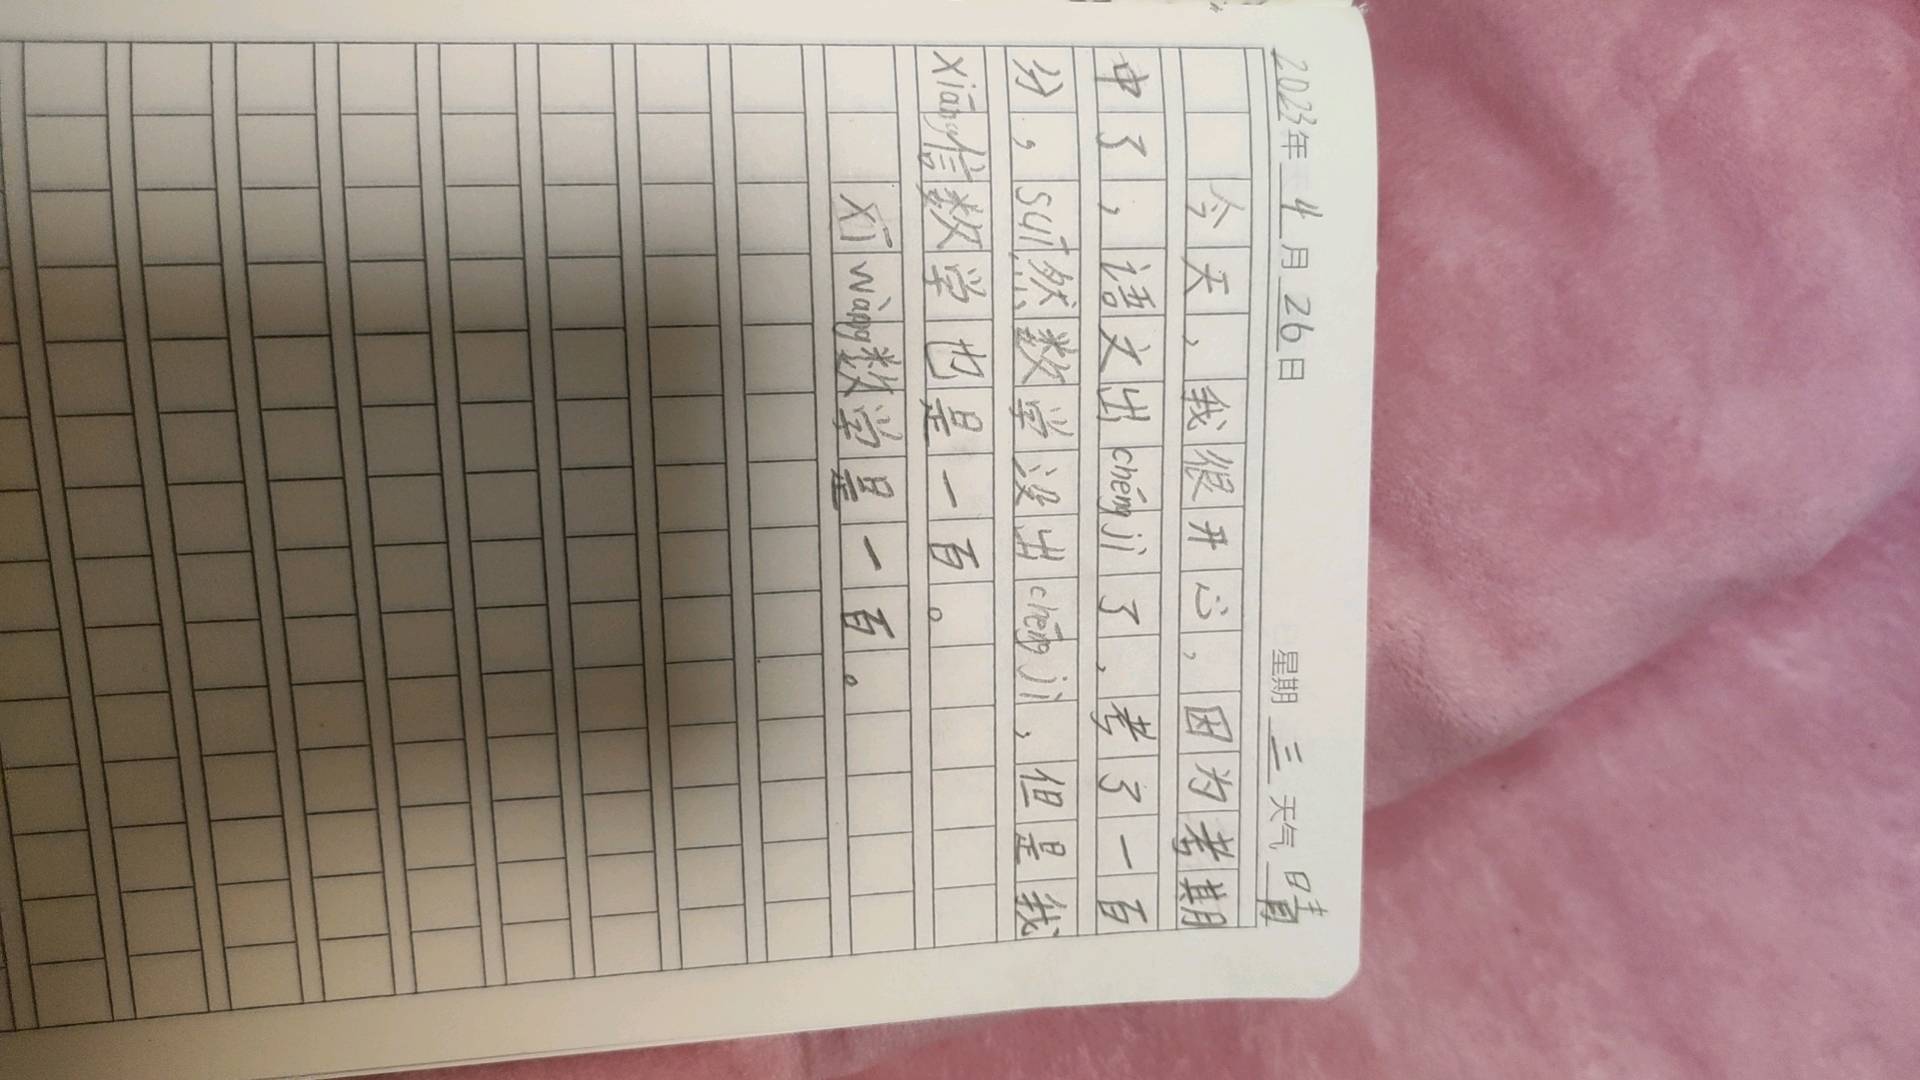 2023年4月26日 星期三 天气晴
今天，我很开心，因为考期
中了，语文出chéngjì了，考了一百
分，suī然数学没出chéngjì，但是我
xiāng信数学也是一百。
xī wàng数学是一百。